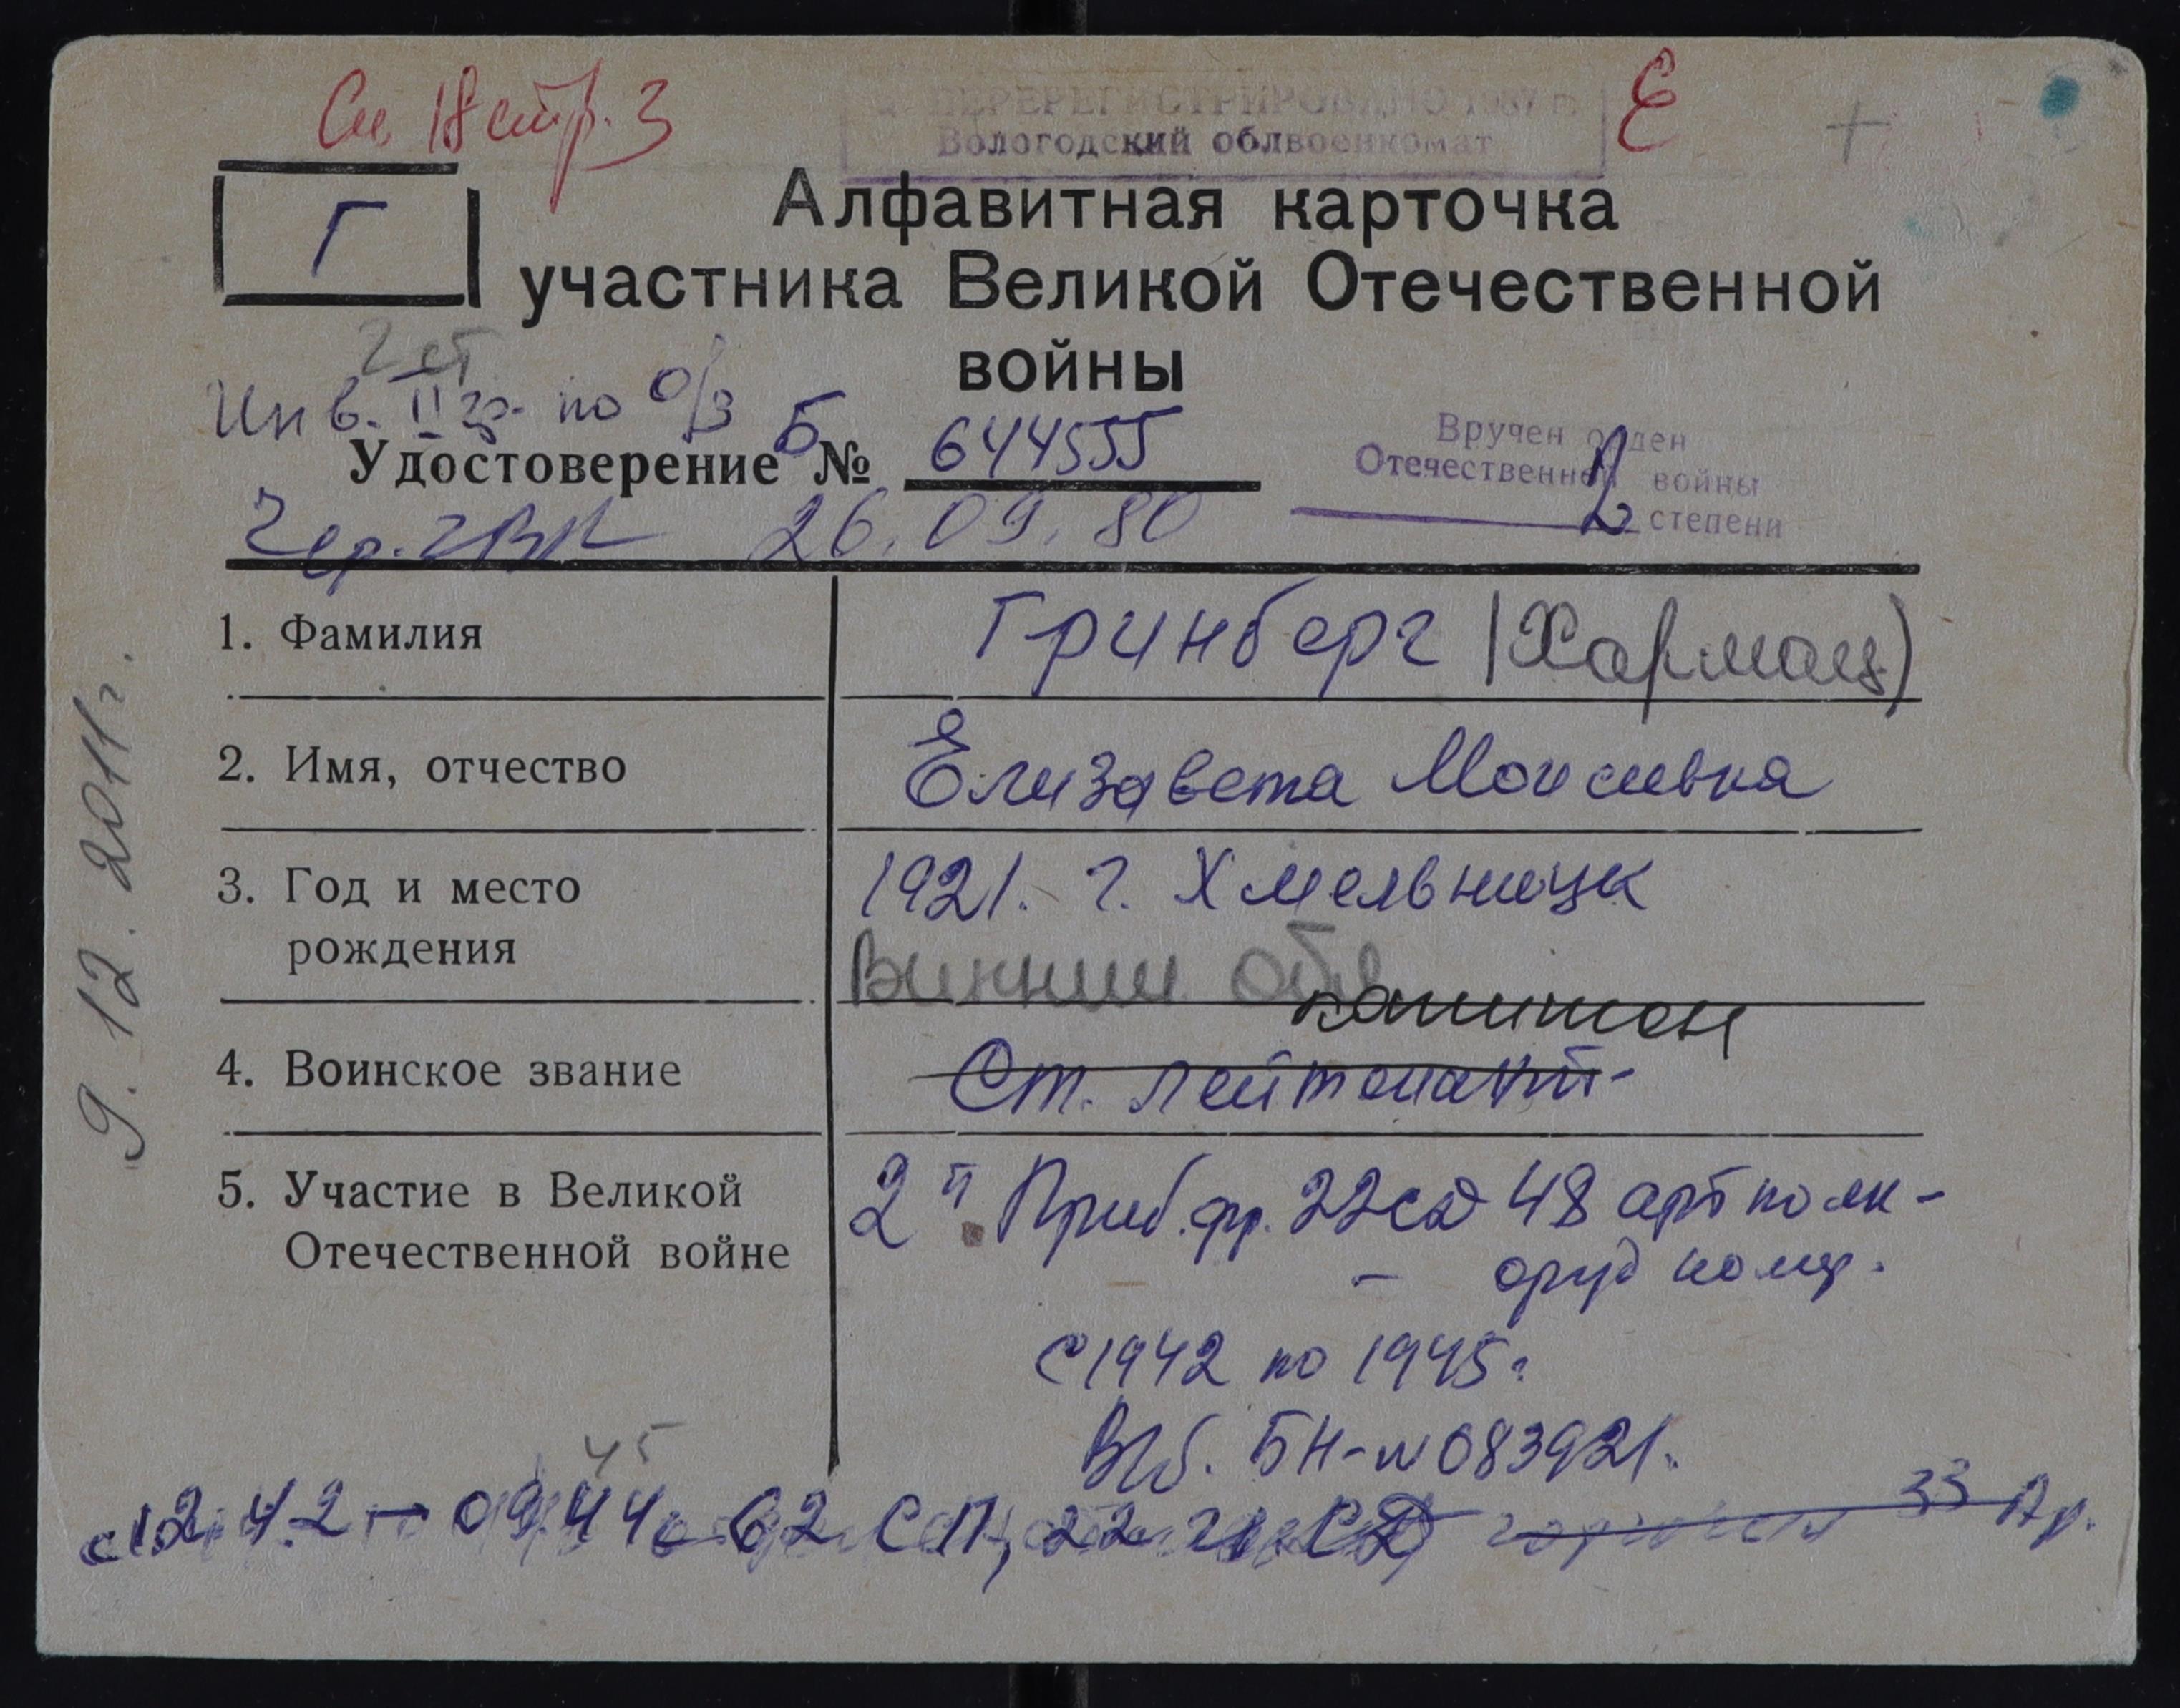 См. 18 стр. 3
ПЕРЕРЕГИСТРИРОВАНО 1987 г.
Вологодский облвоенкомат
Е
+
Г
Алфавитная карточка
участника Великой Отечественной
войны
2 ст
Инв. II гр. по о/з
Удостоверение Б № 644555
Чер. ГВК 26.09.80
Вручен орден
Отечественной войны
2 степени
1. Фамилия
Гринберг (Хармац)
2. Имя, отчество
Елизавета Моисеевна
3. Год и место
рождения
1921. г. Хмельницк
Винниц обл
4. Воинское звание
капитан
Ст. лейтенант
5. Участие в Великой
Отечественной войне
2й Приб. фр. 22 сд 48 арт полк -
- оруд номер.
с 1942 по 1945г
В/б. БН-№083921.
45
с 12.42 - 09.44 62 СП, 22 СД 33 Ар.
9.12.2011г.